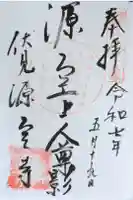 奉拝
令和七年
五月十九日
源空上人御影
伏見源空寺